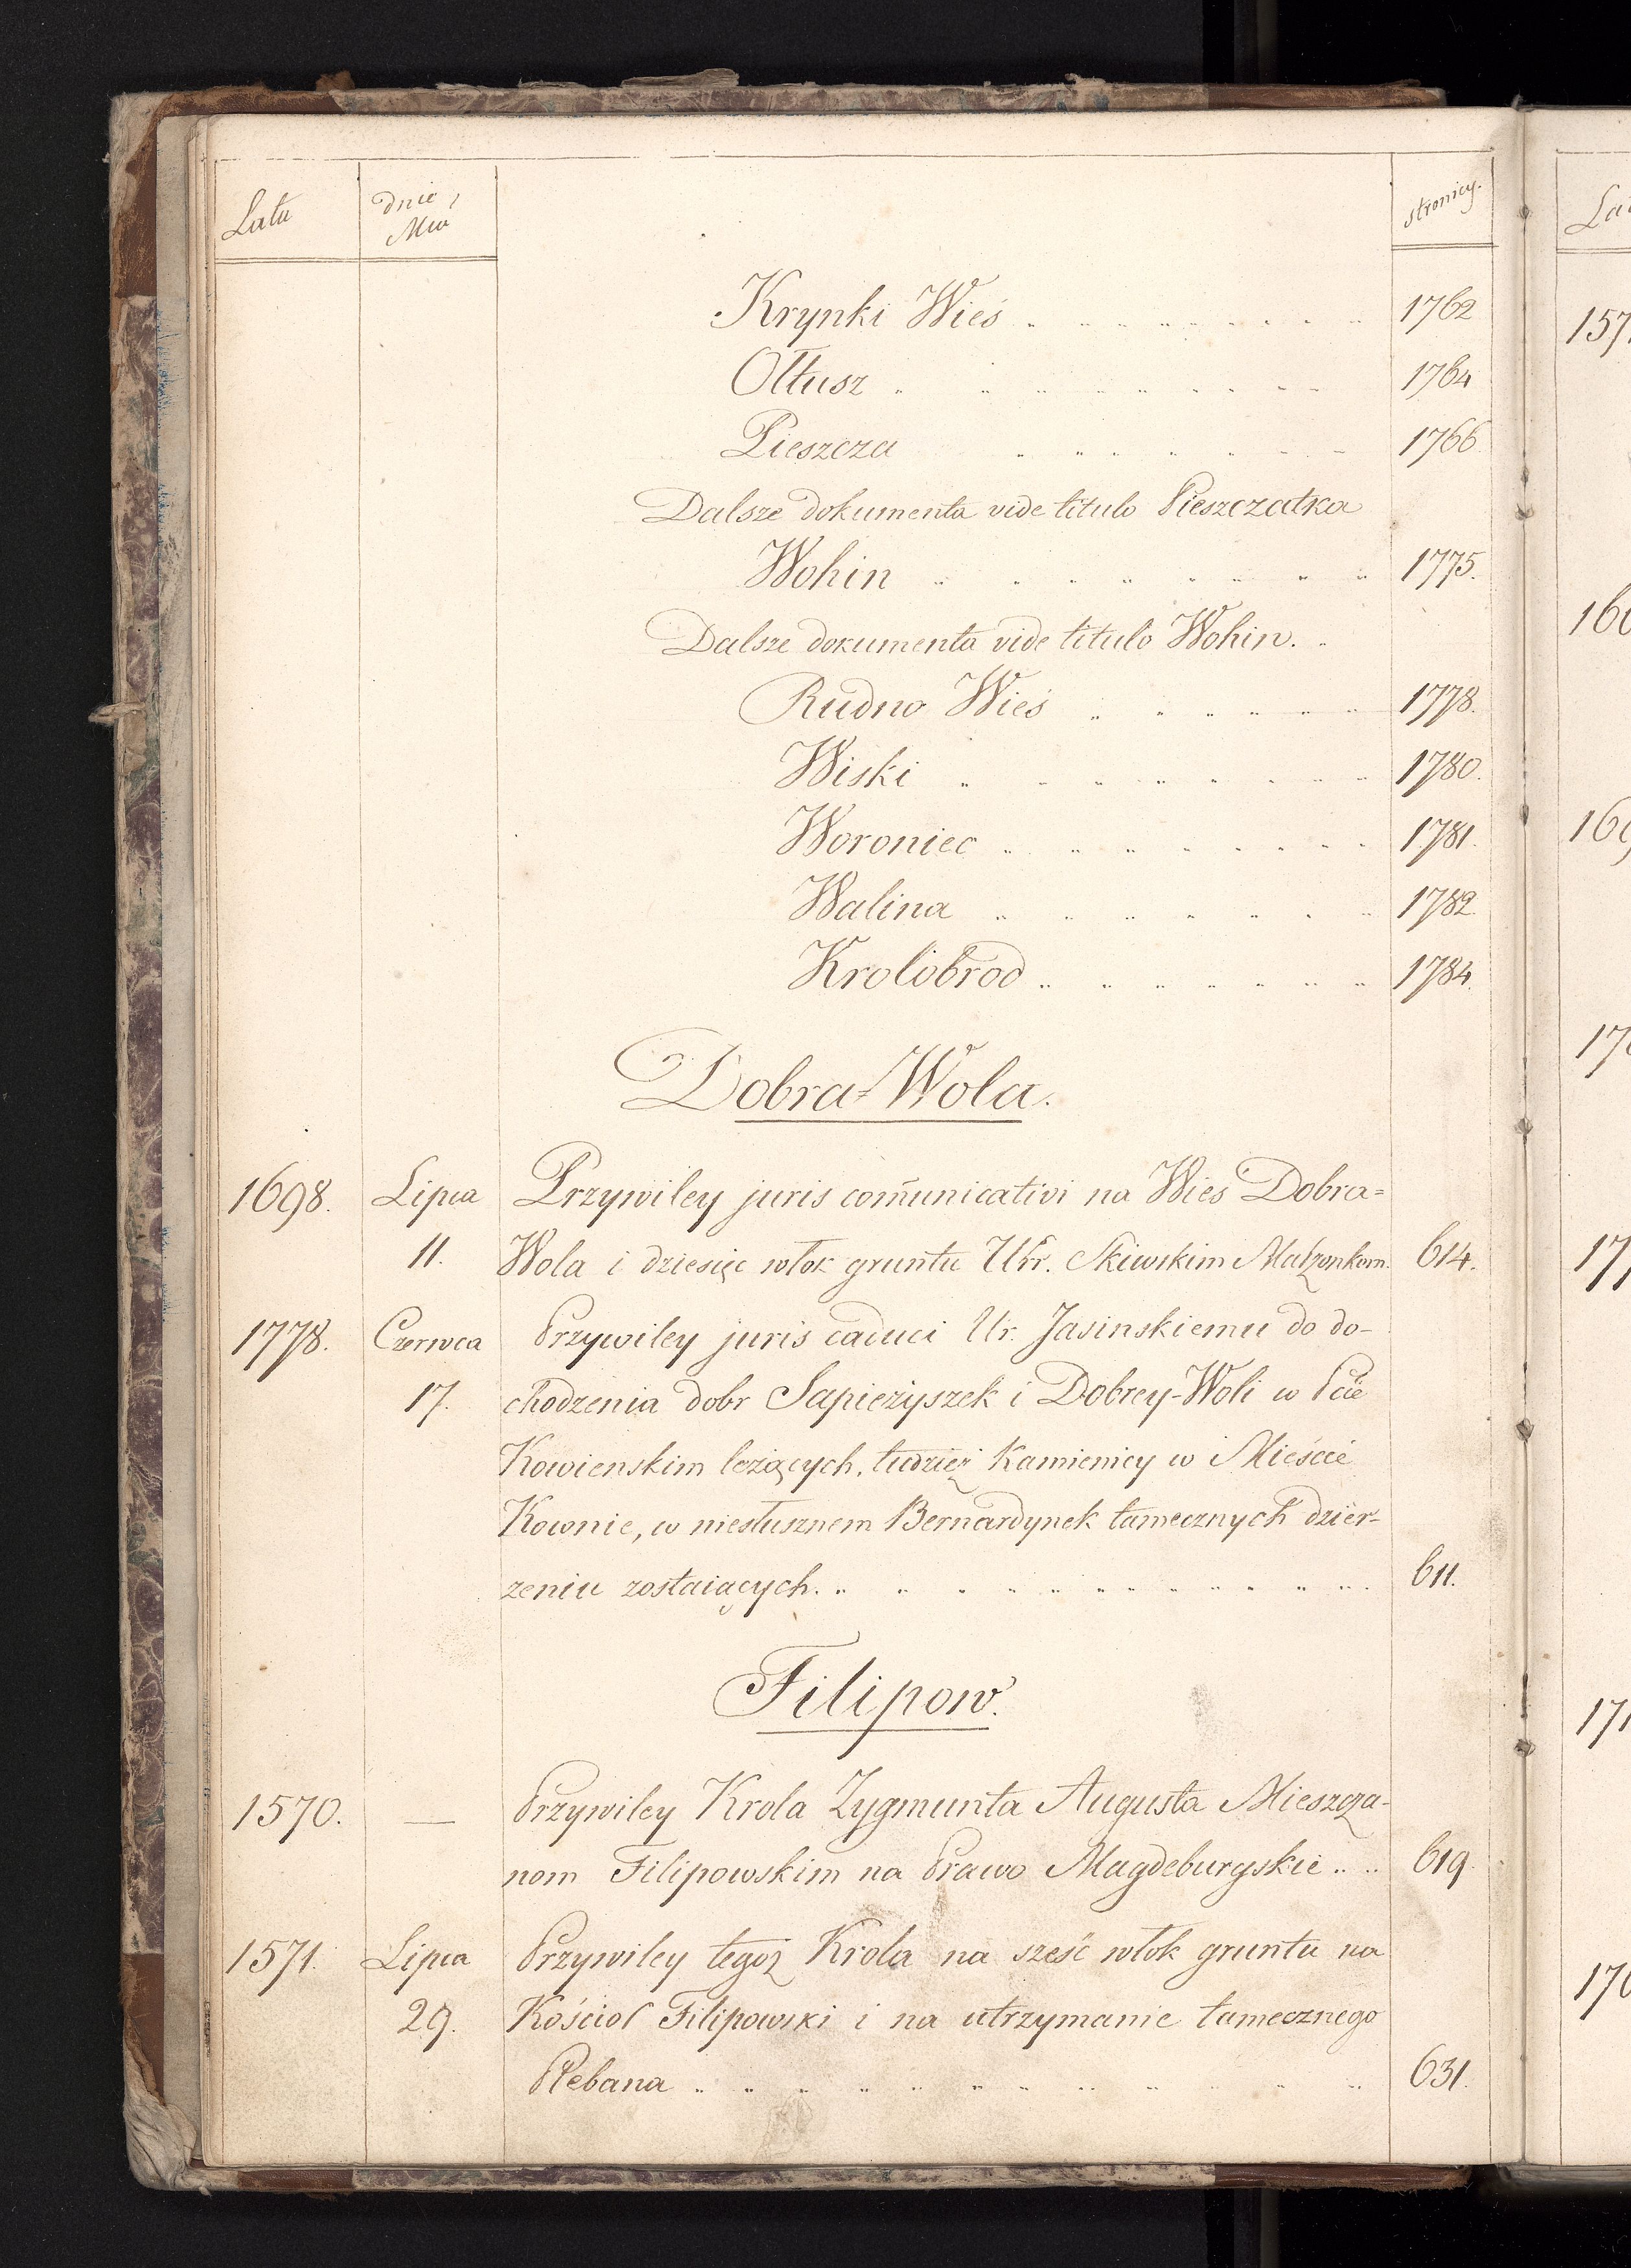 Lata dnie, Mca stronicy.
Krynki Wieś 1762
Ołtusz 1764
Pieszcza 1766.
Dalsze dokumenta vide titulo Pieszczatka
Wohin 1775.
Dalsze dokumenta vide titulo Wohin.
Rudno Wieś 1778.
Wiski 1780.
Woroniec 1781.
Walina 1782.
Krolobrod 1784.
Dobra-Wola.
1698. Lipca Przywiley juris com̄unicativi na Wieś Dobra=
11. Wola i dziesięc włok gruntu Urr. Skiwskim Małżonkom. 614.
1778. Czerwca Przywiley juris caduci Ur. Jasinskiemu do do-
17. chodzenia dobr Sapieżyszek i Dobrey-Woli w Pcie
Kowienskim leżących, tudzież Kamienicy w Mieście
Kownie, w niesłusznem Bernardynek tamecznych dzier-
żeniu zostaiących. 611.
Filipow.
1570. — Przywiley Krola Zygmunta Augusta Mieszcza-
nom Filipowskim na Prawo Magdeburgskie 619.
1571. Lipca Przywiley tegoż Krola na sześć włok gruntu na
29. Kościoł Filipowski i na utrzymanie tamecznego
Plebana 631.